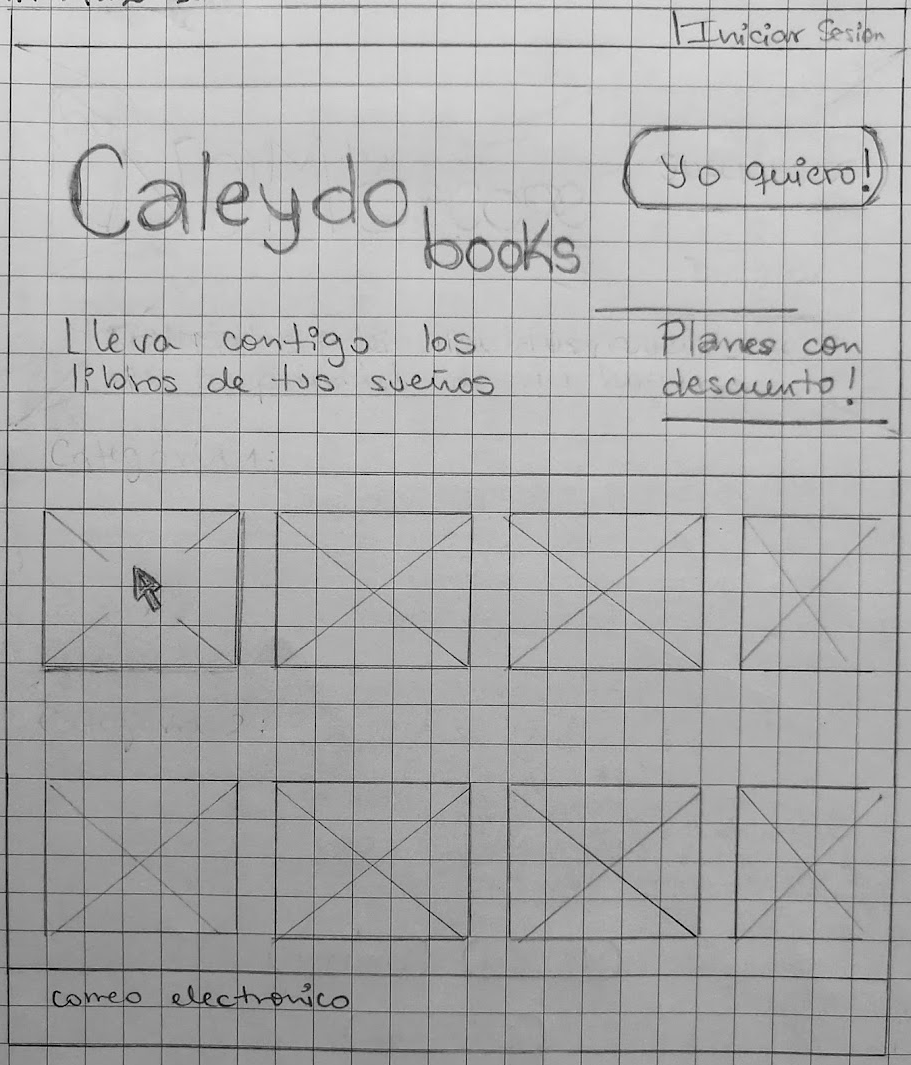 Iniciar Sesion
Caleydo
books
Yo quiero!
Lleva contigo los
libros de tus sueños
Planes con
descuento!
correo electronico